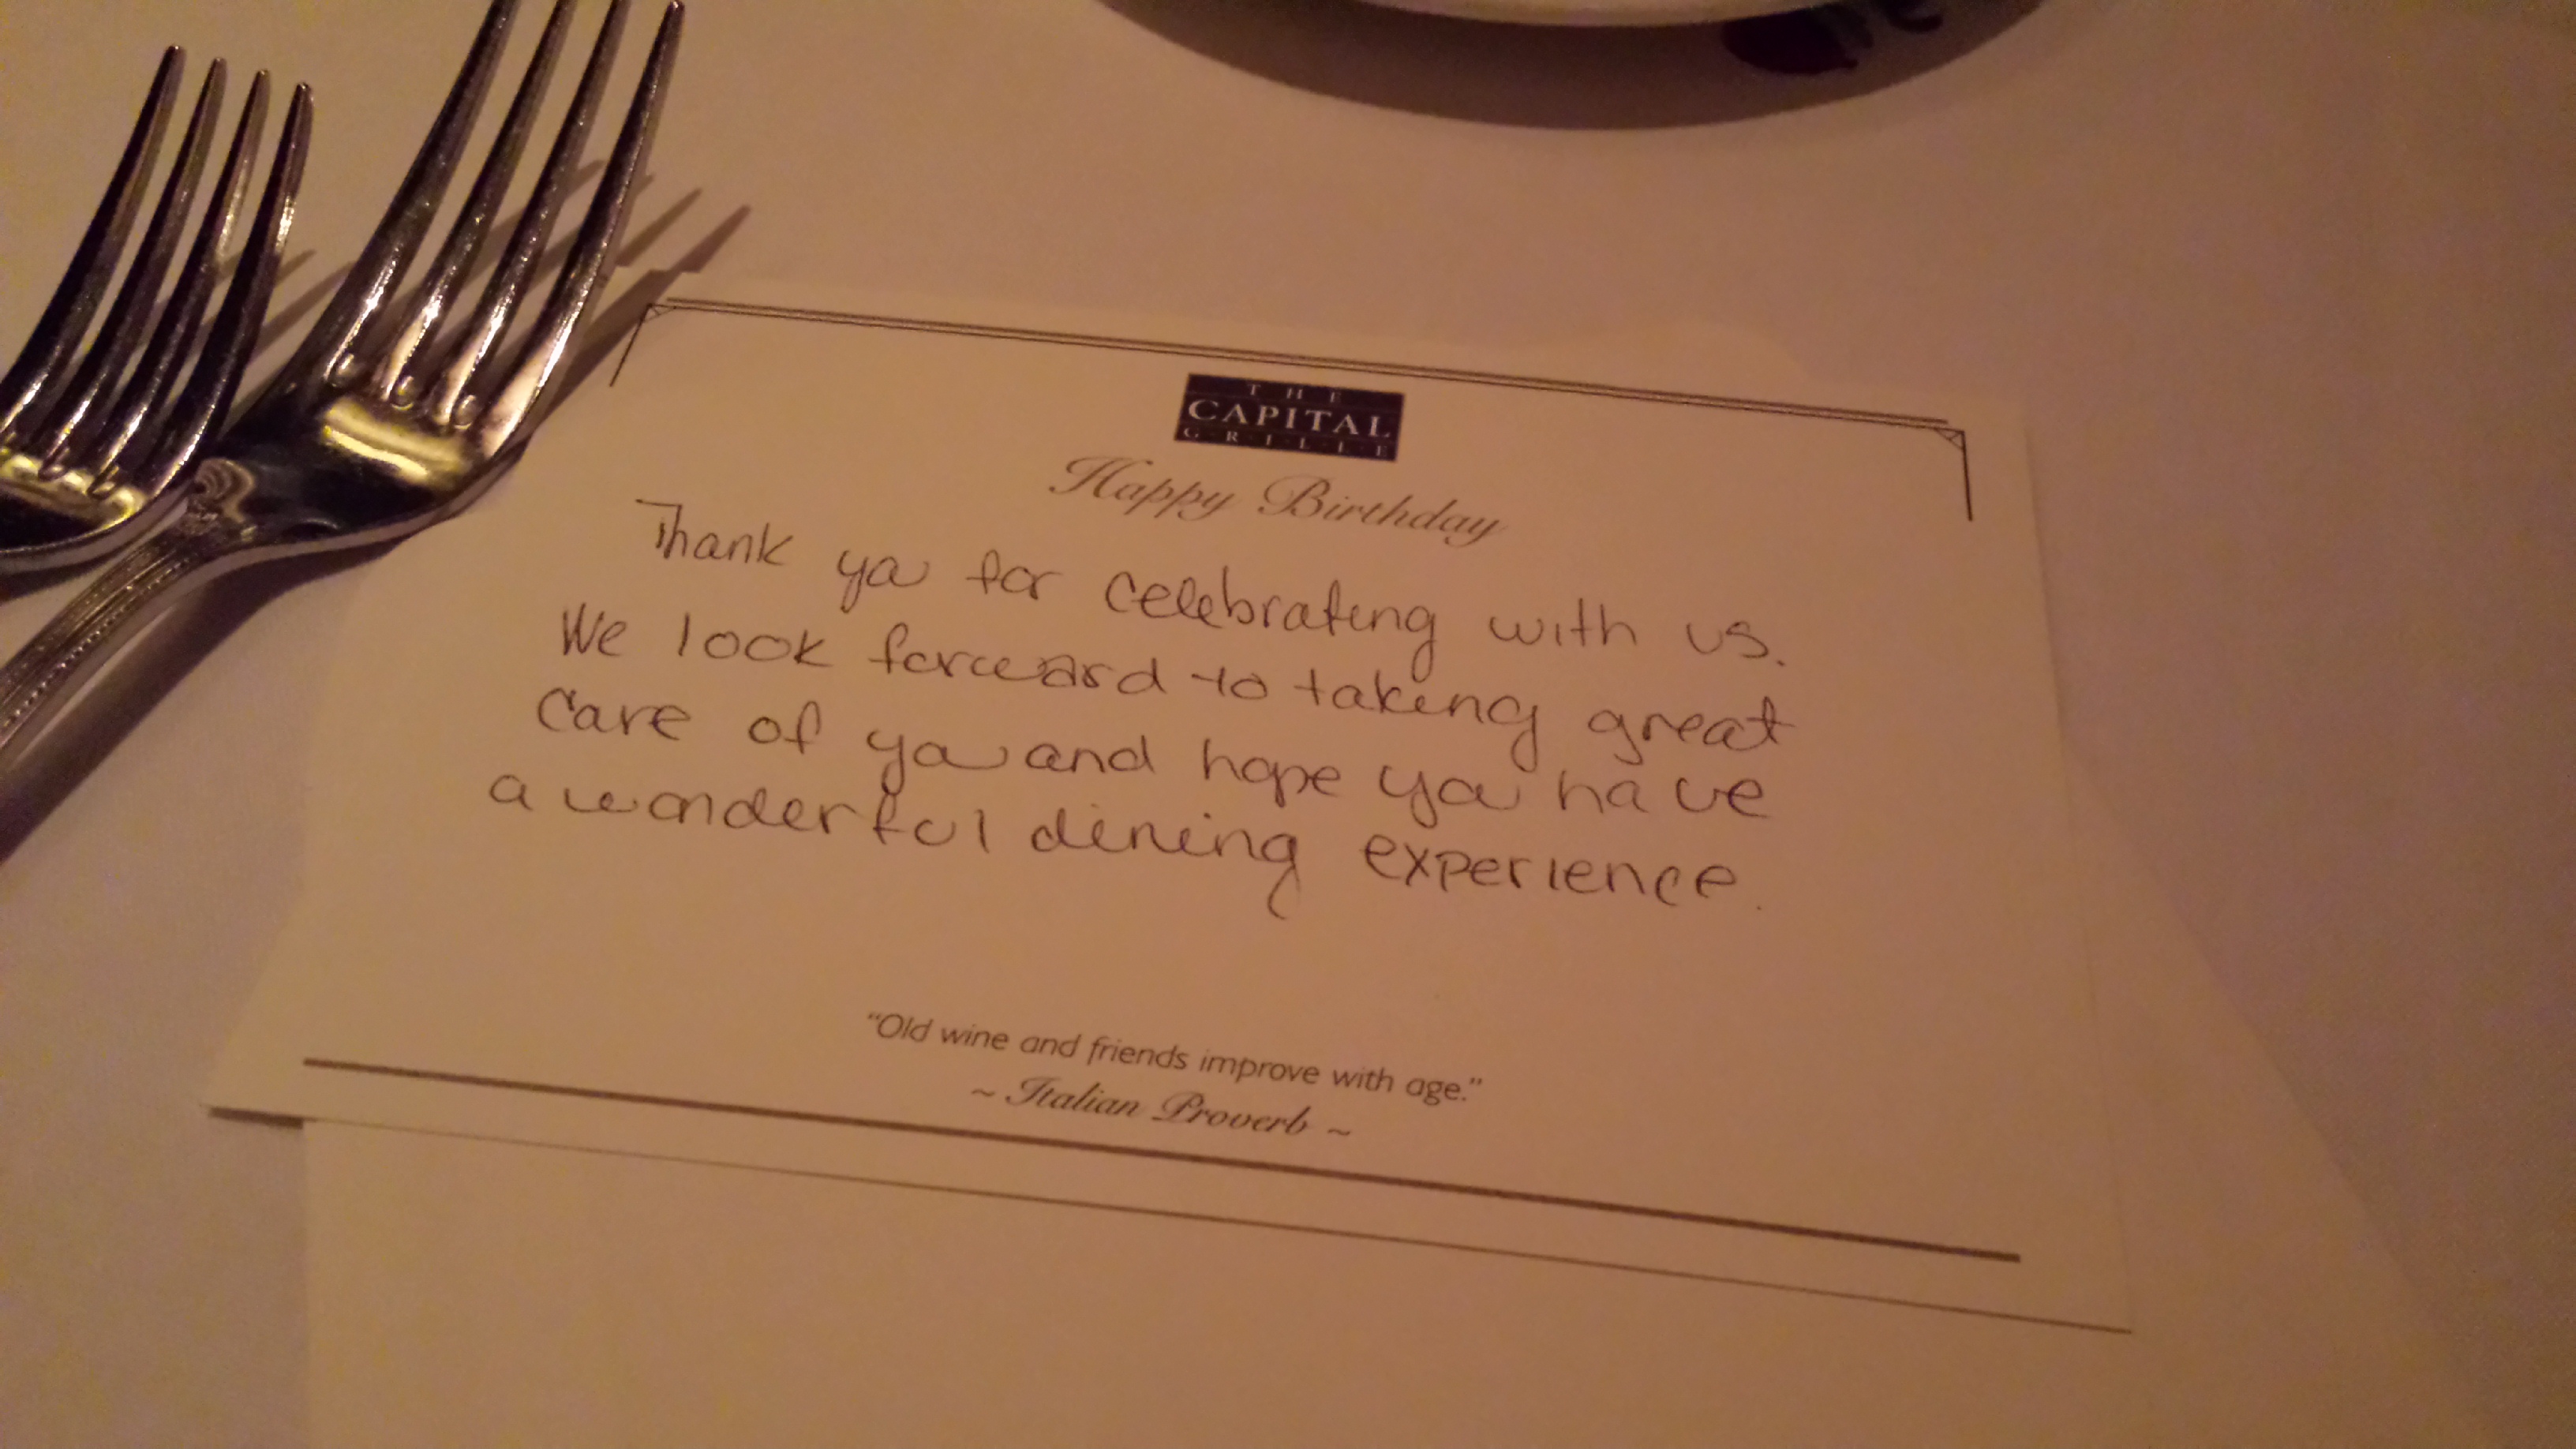 THE
CAPITAL
GRILLE
Happy Birthday
Thank you for celebrating with us.
We look forward to taking great
care of you and hope you have
a wonderful dining experience.
"Old wine and friends improve with age."
~ Italian Proverb ~